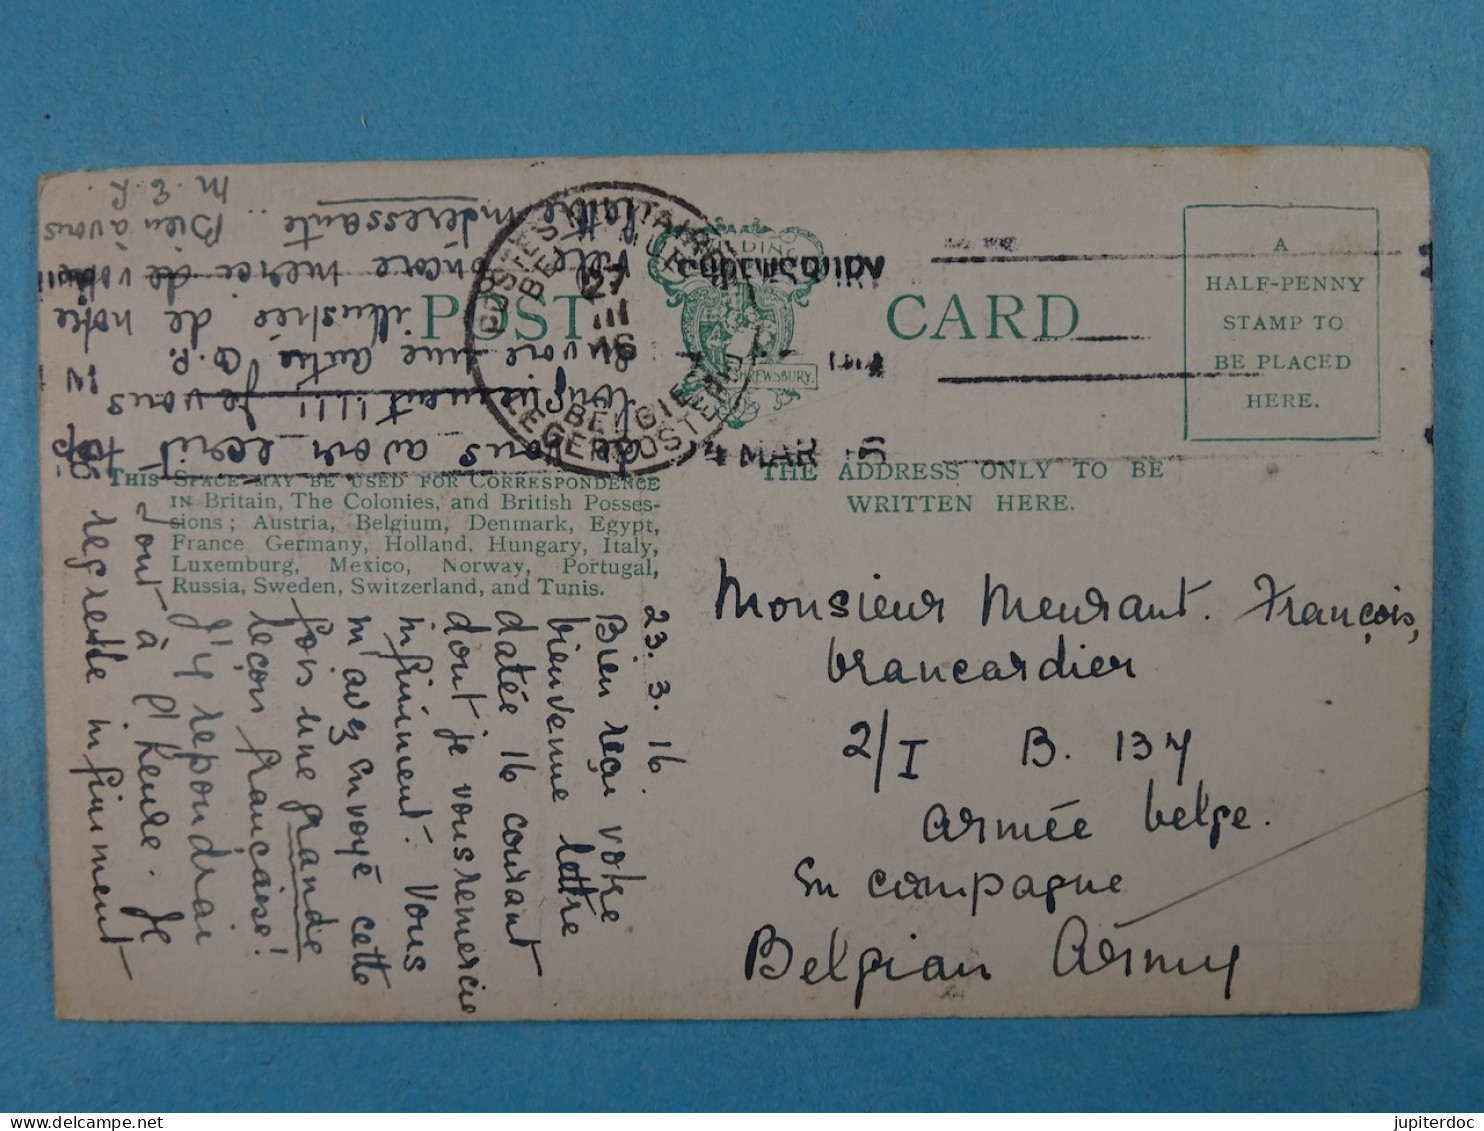 POST CARD
A
HALF-PENNY
STAMP TO
BE PLACED
HERE.
SHREWSBURY
SHREWSBURY.
4 MAR 16
POSTES MILITAIRES
BELGIQUE
27
III
16
BELGIE
LEGERPOSTERIJ
THIS SPACE MAY BE USED FOR CORRESPONDENCE
IN Britain, The Colonies, and British Posses-
sions; Austria, Belgium, Denmark, Egypt,
France Germany, Holland. Hungary, Italy,
Luxemburg, Mexico, Norway, Portugal,
Russia, Sweden, Switzerland, and Tunis.
THE ADDRESS ONLY TO BE
WRITTEN HERE.
Monsieur Meurant. François,
brancardier
2/I B. 137
armée belge.
En campagne
Belgian Army
23. 3. 16
Bien reçu votre
bienvenue lettre
datée 16 courant
dont je vous remercie
infiniment. Vous
m'avez envoyé cette
fois une grande
leçon française!
J'y repondrai
tout à l'heure. Je
regrette infiniment
de vous avoir ecrit trop
longuement!!!! Je vous
envoie une autre C.P.
illustrée de notre
ville
encore merci de votre
lettre intéressante..
Bien à vous
M. E. R.
jupiterdoc